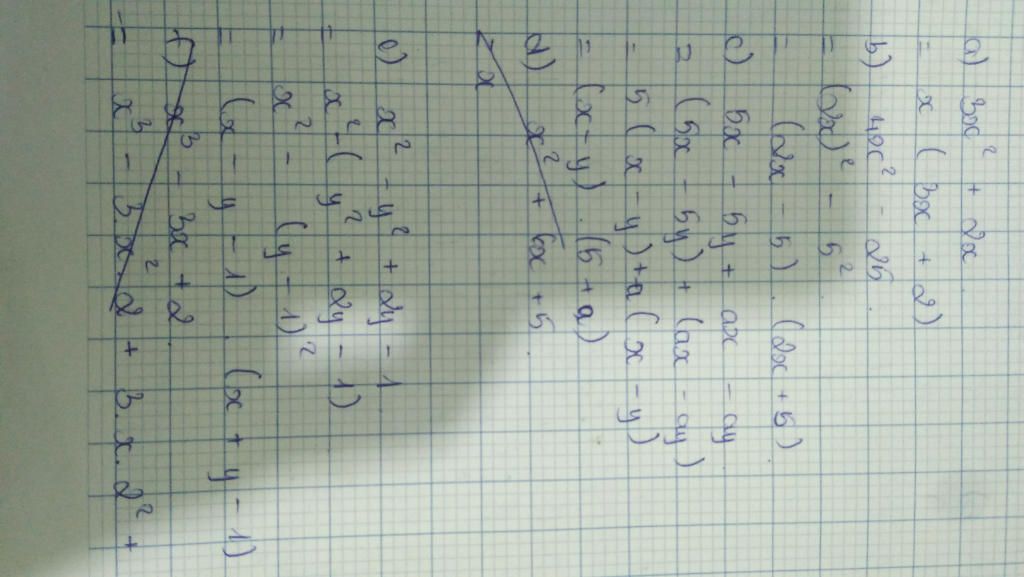 a) 3x² + 2x
= x ( 3x + 2)
b) 4x² - 25
= (2x)² - 5²
= (2x - 5) . (2x + 5)
c) 5x - 5y + ax - ay
= (5x - 5y) + (ax - ay)
= 5 ( x - y) + a ( x - y)
= (x - y) . (5 + a)
d) x² + 6x + 5
= x
e) x² - y² + 2y - 1
= x² - ( y² + 2y - 1)
= x² - (y - 1)²
= (x - y - 1) (x + y - 1)
f) x³ - 3x + 2
= x³ - 3 x² . 2 + 3 . x . 2² +